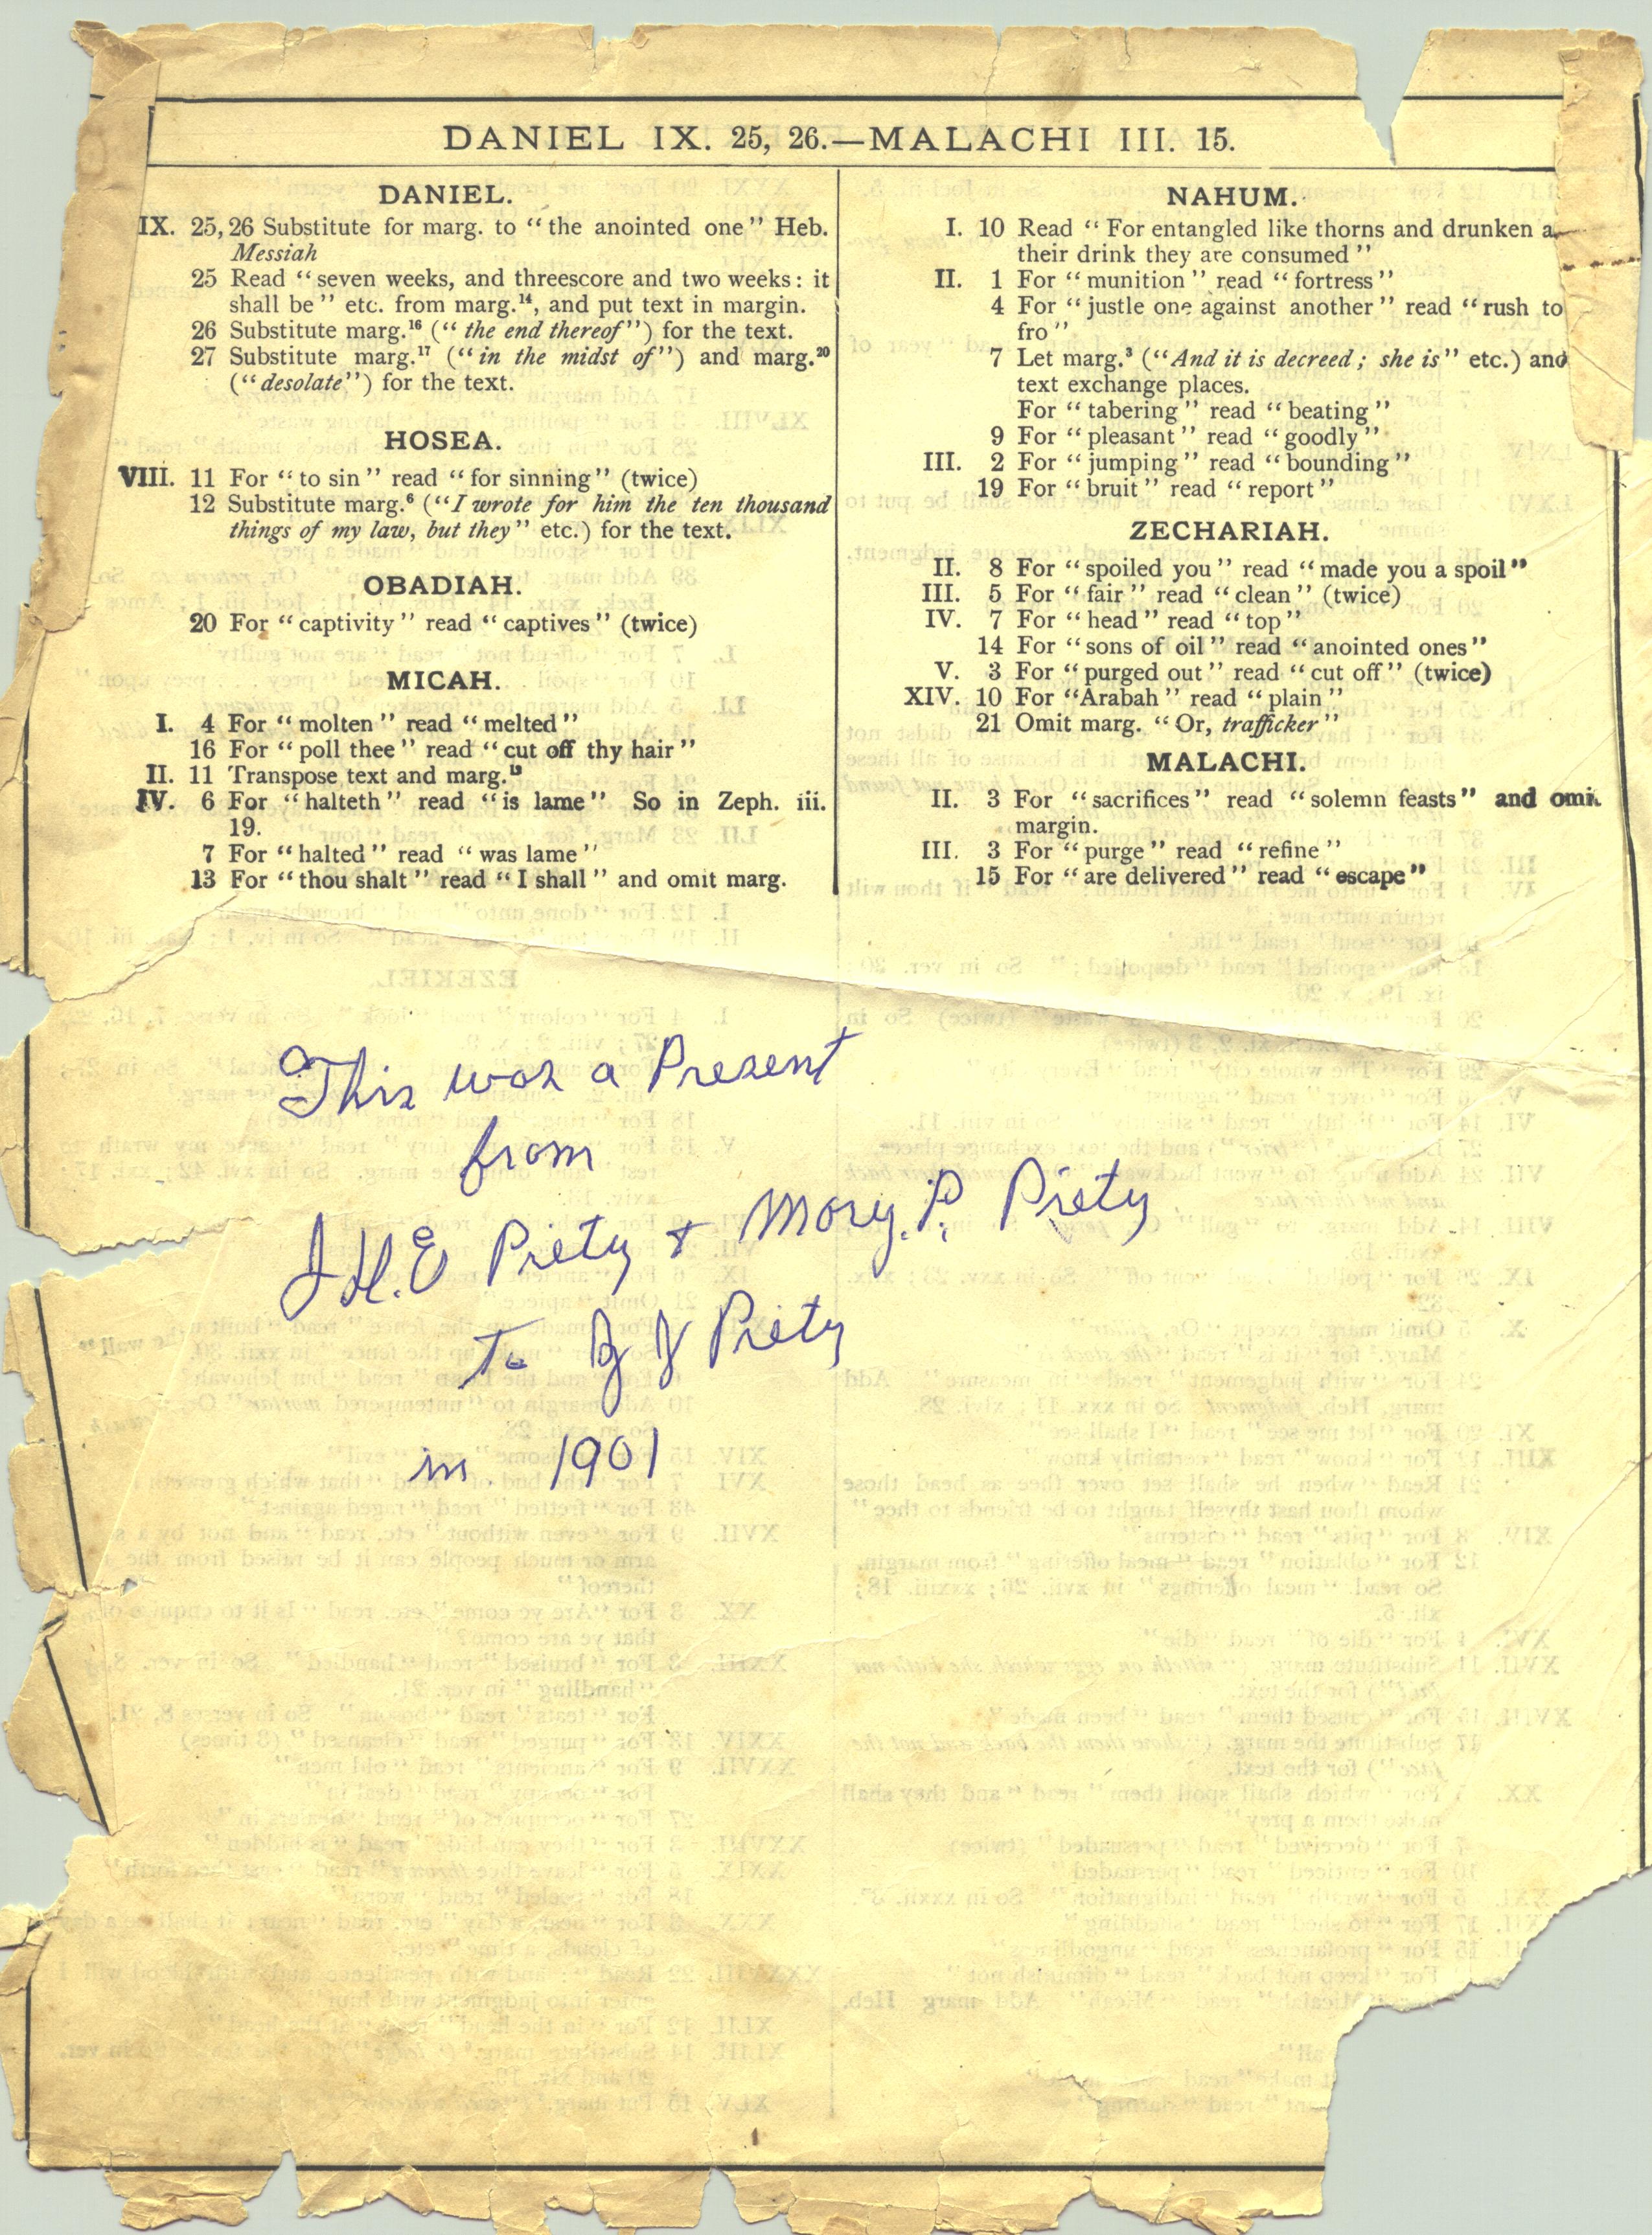 DANIEL IX. 25, 26.—MALACHI III. 15.
DANIEL.
IX. 25, 26 Substitute for marg. to “the anointed one” Heb.
Messiah
25 Read “seven weeks, and threescore and two weeks: it
shall be” etc. from marg.¹⁴, and put text in margin.
26 Substitute marg.¹⁶ (“the end thereof”) for the text.
27 Substitute marg.¹⁷ (“in the midst of”) and marg.²⁰
(“desolate”) for the text.
HOSEA.
VIII. 11 For “to sin” read “for sinning” (twice)
12 Substitute marg.⁶ (“I wrote for him the ten thousand
things of my law, but they” etc.) for the text.
OBADIAH.
20 For “captivity” read “captives” (twice)
MICAH.
I. 4 For “molten” read “melted”
16 For “poll thee” read “cut off thy hair”
II. 11 Transpose text and marg.¹³
IV. 6 For “halteth” read “is lame” So in Zeph. iii.
19.
7 For “halted” read “was lame”
13 For “thou shalt” read “I shall” and omit marg.
NAHUM.
I. 10 Read “For entangled like thorns and drunken a
their drink they are consumed”
II. 1 For “munition” read “fortress”
4 For “justle one against another” read “rush to
fro”
7 Let marg.³ (“And it is decreed; she is” etc.) and
text exchange places.
For “tabering” read “beating”
9 For “pleasant” read “goodly”
III. 2 For “jumping” read “bounding”
19 For “bruit” read “report”
ZECHARIAH.
II. 8 For “spoiled you” read “made you a spoil”
III. 5 For “fair” read “clean” (twice)
IV. 7 For “head” read “top”
14 For “sons of oil” read “anointed ones”
V. 3 For “purged out” read “cut off” (twice)
XIV. 10 For “Arabah” read “plain”
21 Omit marg. “Or, trafficker”
MALACHI.
II. 3 For “sacrifices” read “solemn feasts” and omit
margin.
III. 3 For “purge” read “refine”
15 For “are delivered” read “escape”
This was a Present
from
J H. E Piety & Mary. P. Piety
To J J Piety
in 1901